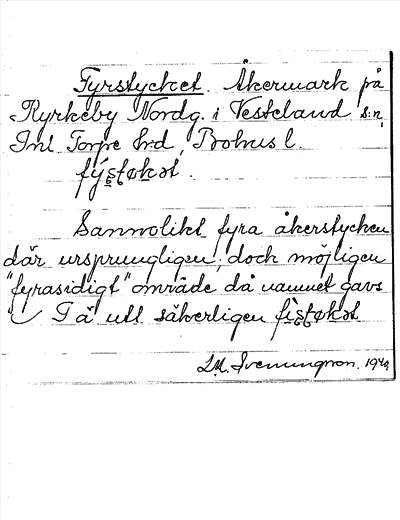 Fyrstycket. Åkermark på
Kyrkeby Nordg. i Vesteland s:n,
Inl Torpe h:d, Bohus l.
Sannolikt fyra åkerstycken
där ursprungligen; doch möjligen
"fyrasidigt" område då namnet gavs
Få utt. säkerligen
J.M. Svenungson. 1940